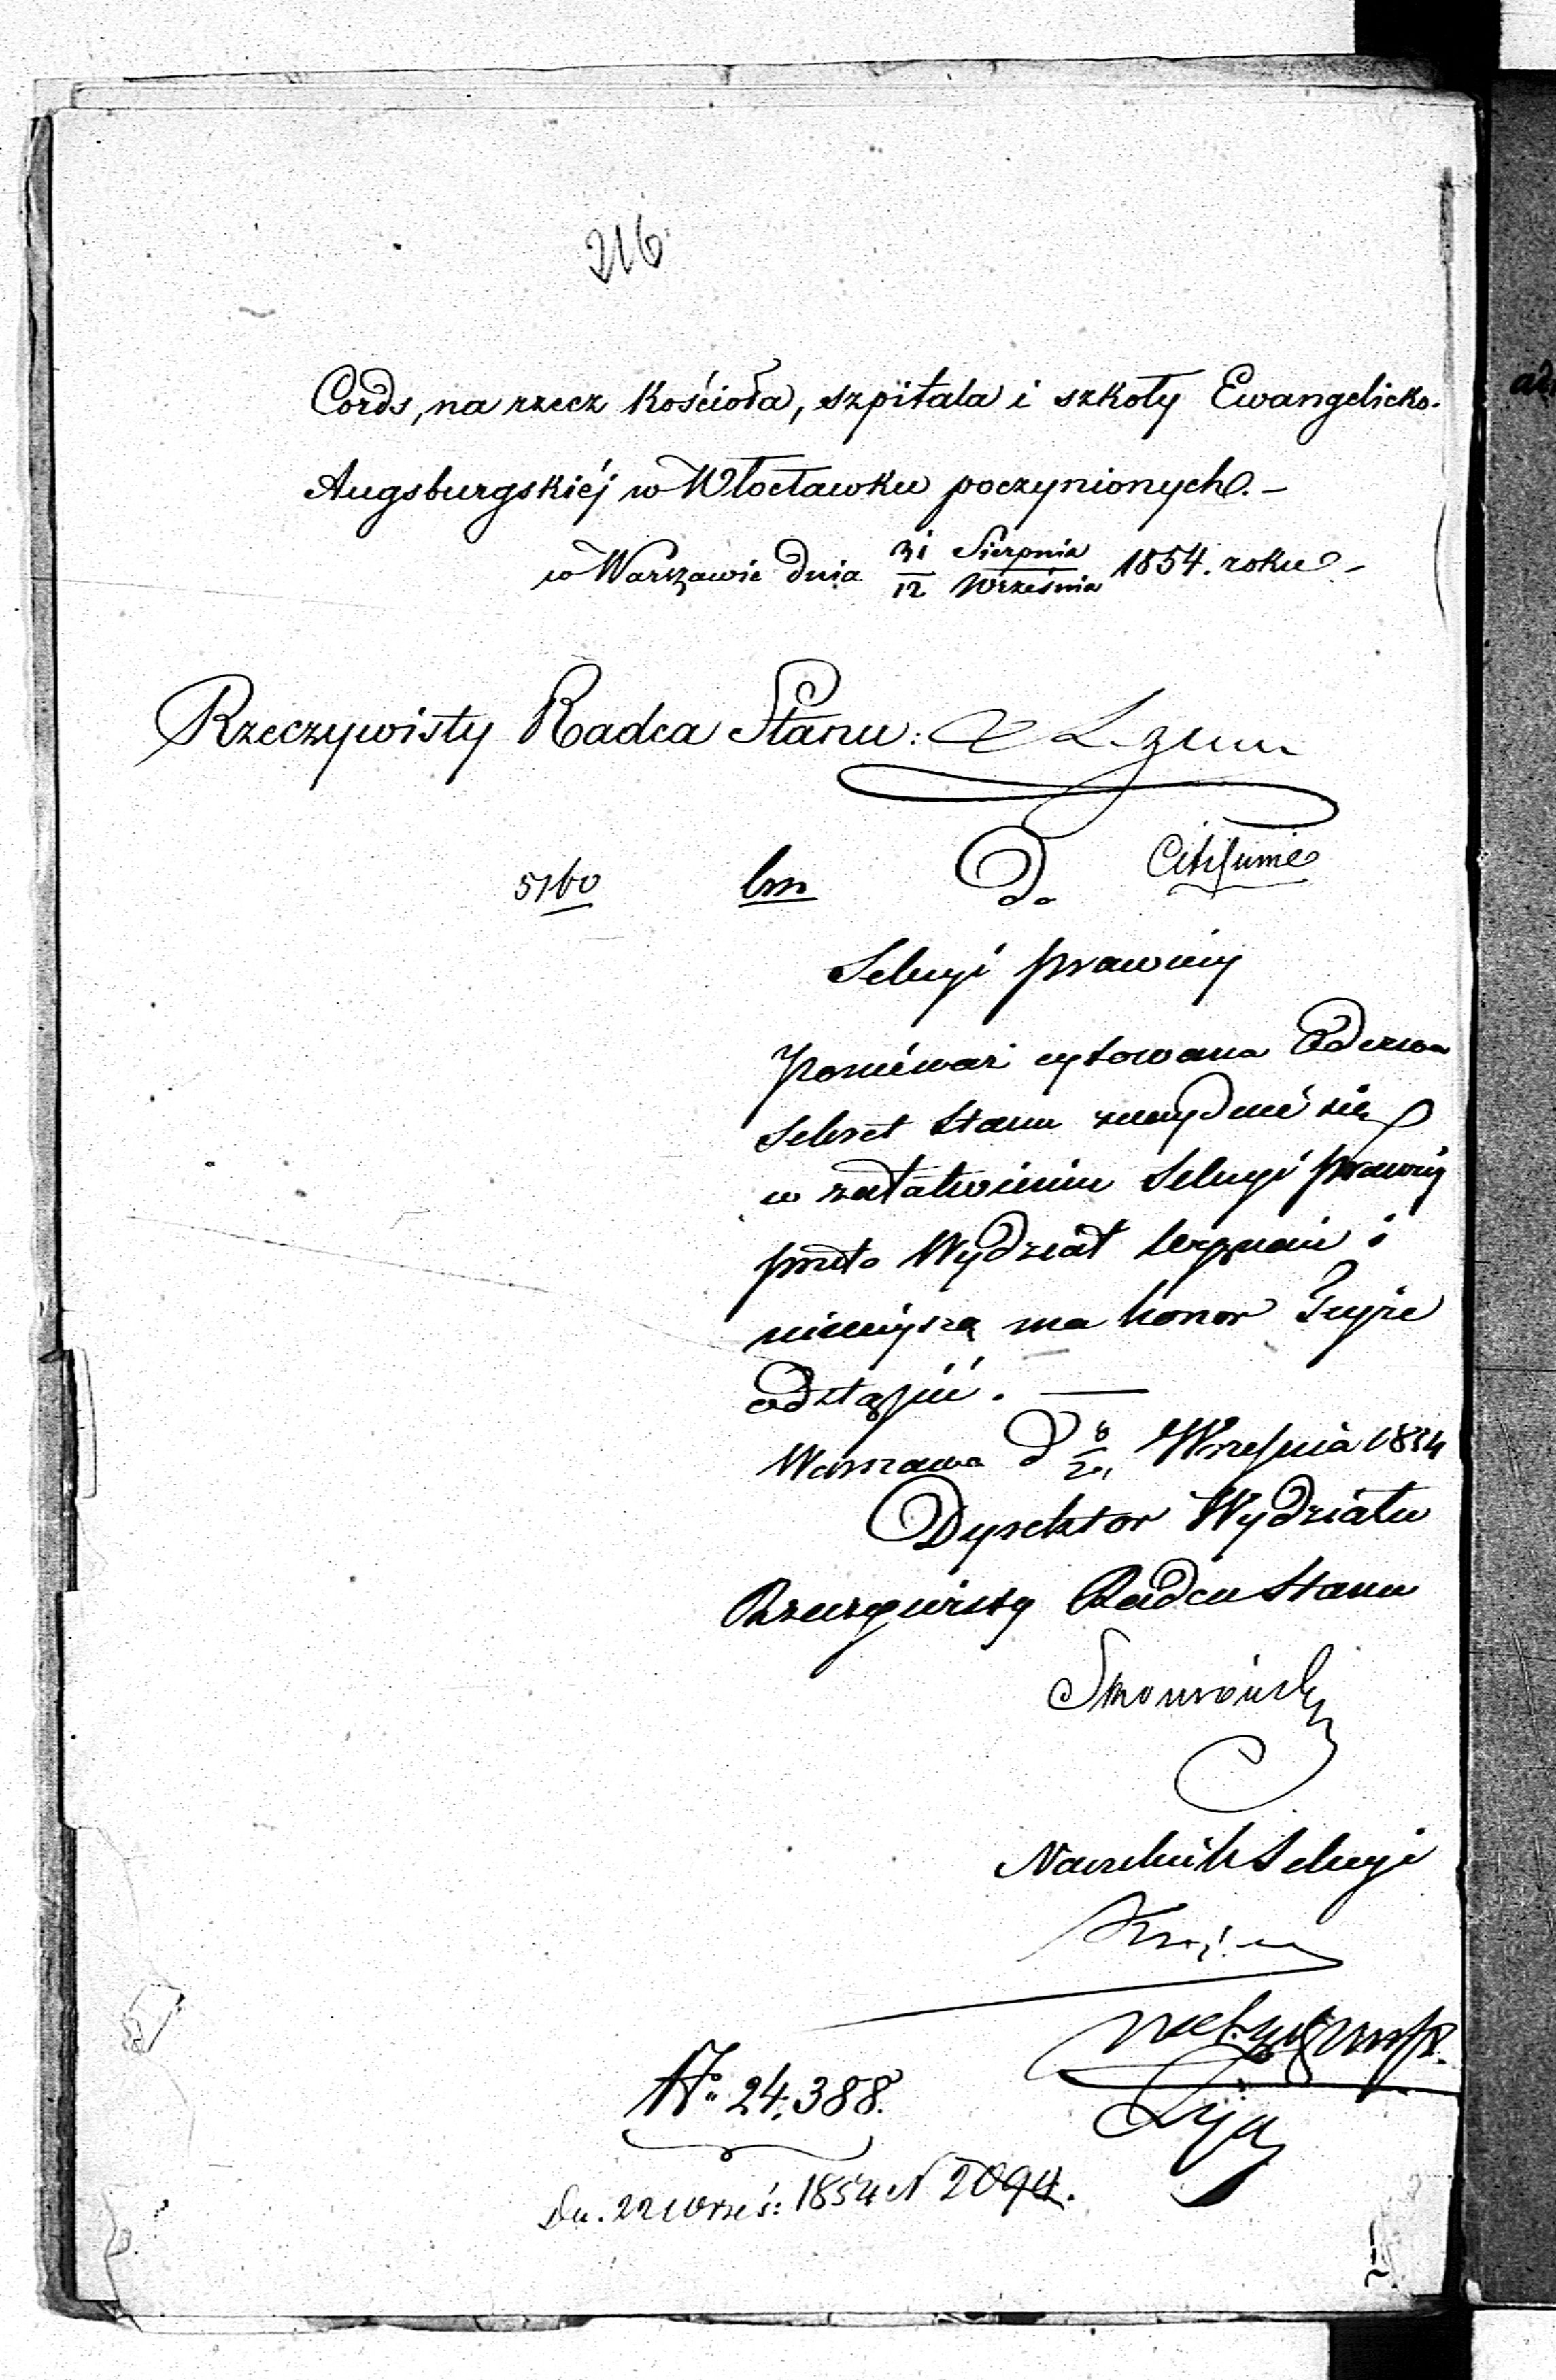 216
Cords, na rzecz Kościoła, szpitala i szkoły Ewangelicko-
Augsburgskiéj w Włocławku poczynionych. -
w Warszawie dnia 31 Sierpnia / 12 Września 1854. roku -
Rzeczywisty Radca Stanu:
5160
Do
Sekcyi prawnéj
Ponieważ cytowana Odezwa
Sekret Stanu znajduie się
w załatwieniu Sekcyi prawnéj
przeto Wydział Wyznań i
ninieyszą ma honor Teyże
odstąpić. —
Warszawa d 8/20 Września 1854
Dyrektor Wydziału
Rzeczywisty Radca Stanu
Naczelnik Sekcyi
№ 24,388.
Dn. 22 Wrześ: 1854 N 2094.